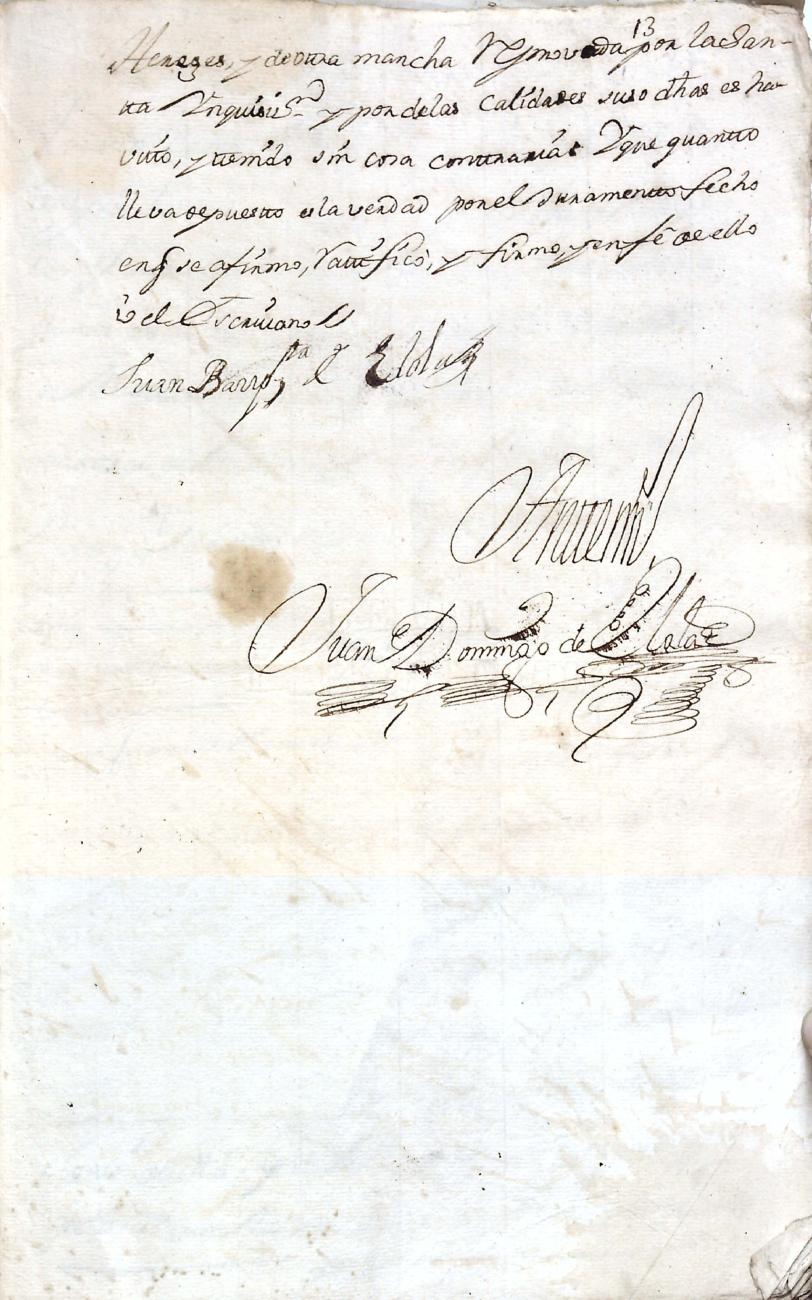 13
Hereges, y de otra mancha Reprovada por la San-
ta Ynquisiⁿ y por de las Calidades suso dhas es ha-
vito, y tenido sin cosa contraria: Yque quanto
lleva depuesto es la verdad por el Juramento fecho
en q̃ se afirmo, Ratifico, y firmo, y en fe de ello
yo el Escrivano
Juan Baup^ta de Elola
Antemi
Juan Domingo de